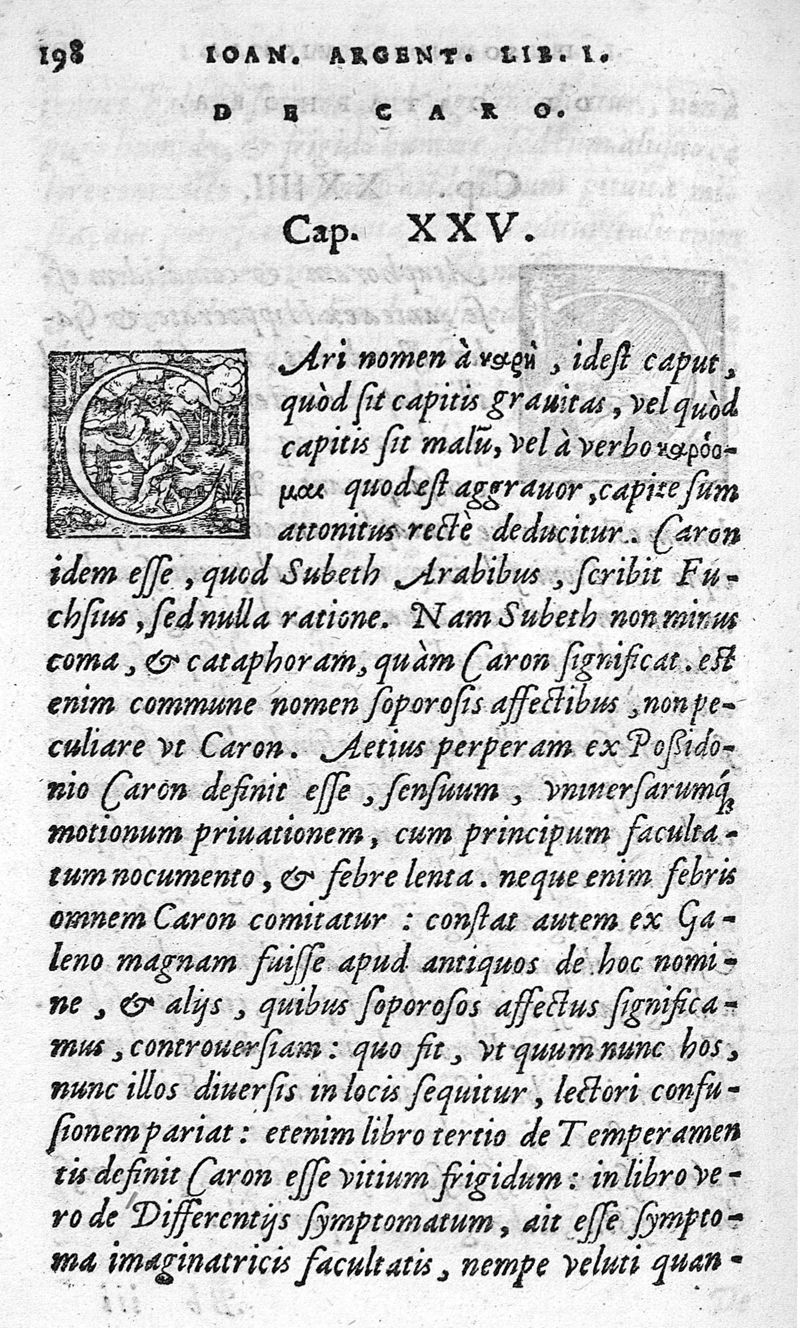 198 IOAN. ARGENT. LIB. I.
DE CARO.
Cap. XXV.
CAri nomen à καρῆ, idest caput,
quòd sit capitis grauitas, vel quòd
capitis sit malũ, vel à verbo καρόο-
μαι quod est aggrauor, capite sum
attonitus rectè deducitur. Caron
idem esse, quod Subeth Arabibus, scribit Fu-
chsius, sed nulla ratione. Nam Subeth non minus
coma, & cataphoram, quàm Caron significat. est
enim commune nomen soporosis affectibus, non pe-
culiare vt Caron. Aetius perperam ex Poßido-
nio Caron definit esse, sensuum, vniuersarumq́;
motionum priuationem, cum principum faculta-
tum nocumento, & febre lenta. neque enim febris
omnem Caron comitatur: constat autem ex Ga-
leno magnam fuisse apud antiquos de hoc nomi-
ne, & alijs, quibus soporosos affectus significa-
mus, controuersiam: quo fit, vt quum nunc hos,
nunc illos diuersis in locis sequitur, lectori confu-
sionem pariat: etenim libro tertio de Temperamen
tis definit Caron esse vitium frigidum: in libro ve-
ro de Differentijs symptomatum, ait esse sympto-
ma imaginatricis facultatis, nempe veluti quan-